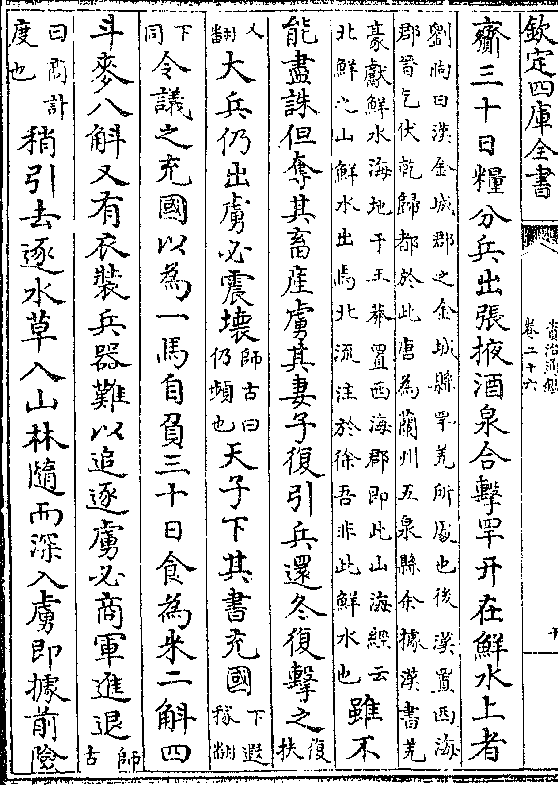 欽定四庫全書
資治通鑑
卷二十六
齎三十日糧分兵出張掖酒泉合擊䍐幵在鮮水上者
劉昫曰漢金城郡之金城縣䍐羌所處也後漢置西海
郡晉乞伏乾歸都於此唐為蘭州五泉縣余據漢書羌
豪獻鮮水海地于王莽置西海郡即此山海經云
北鮮之山鮮水出焉北流注於徐吾非此鮮水也雖不
能盡誅但奪其畜産虜其妻子復引兵還冬復擊之復扶
又翻大兵仍出虜必震壊師古曰仍頻也天子下其書充國下遐稼翻
下同令議之充國以為一馬自負三十日食為米二斛四
斗麥八斛又有衣裝兵器難以追逐虜必商軍進退師古
曰商計度也稍引去逐水草入山林隨而深入虜即據前險